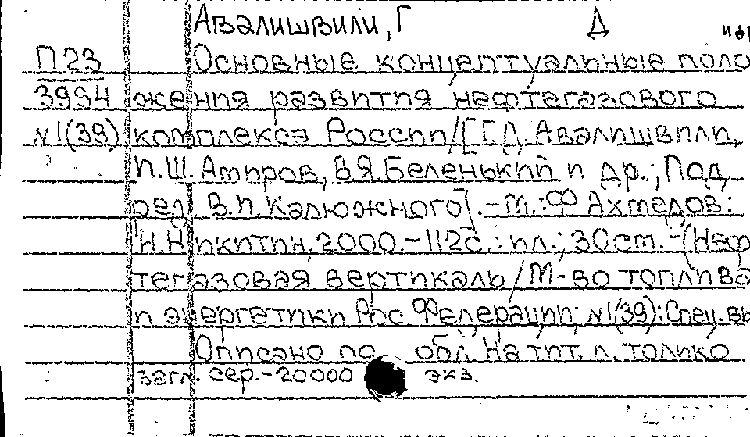 Авалишвили, Г Д
П23 Основные концептуальные поло
3994 жения развития нефтегазового
№1(39) комплекса России/[Г.Д. Авалишвили,
П.Ш. Амиров, В.Я. Беленький и др.; Под
ред. В.И. Калюжного]. - М.: Ф Ахмедов:
Н. Никитин, 2000. - 112с.: ил.; 30см. - (Неф
тегазовая вертикаль/М-во топлива
и энергетики Рос Федерации; №1(39): Спец. вы
Описано по обл. На тит. л. только
загл. сер. - 20000 экз.